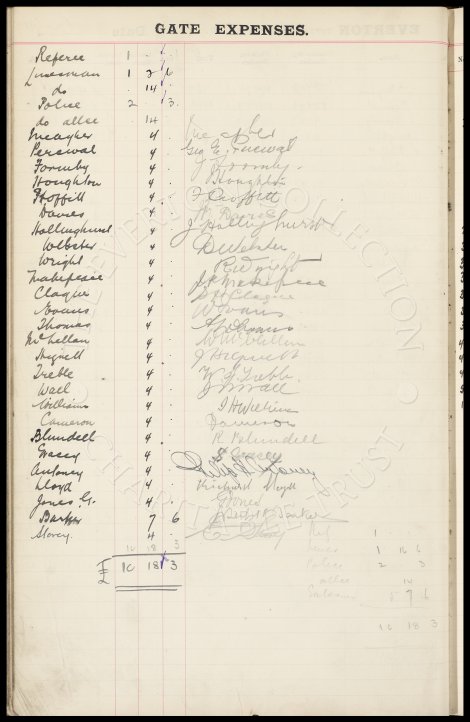 GATE EXPENSES.
Referee 1 . .
Linesman 1 2 6
do . 14 .
Police 2 . 3
do allce . 14 .
Meagher 4 .
Percival 4 . Geo E. Percival
Formby 4 . J Formby
Houghton 4 . Houghton
Proffitt 4 . J Proffitt
Davies 4 .
Hollinghurst 4 . J Hollinghurst
Webster 4 . D Webster
Wright 4 . R Wright
Makepeace 4 . Makepeace
Clague 4 . Clague
Evans 4 . W Evans
Thomas 4 .
McLellan 4 .
Hignett 4 . J Hignett
Treble 4 . Treble
Wall 4 . J Wall
Williams 4 . J H Williams
Cameron 4 . Cameron
Blundell 4 . R Blundell
Gracey 4 . Gracey
Antoney 4 . Antoney
Lloyd 4 . Richard Lloyd
Jones G. 4 . G Jones
Barker 7 6 Barker
Storey. 4 .
10 18 3
£ 10 18 3
Ref 1 . .
Lines 1 16 6
Police 2 . 3
allce 14
8 7 6
10 18 3
EVERTON COLLECTION
CHARITABLE TRUST